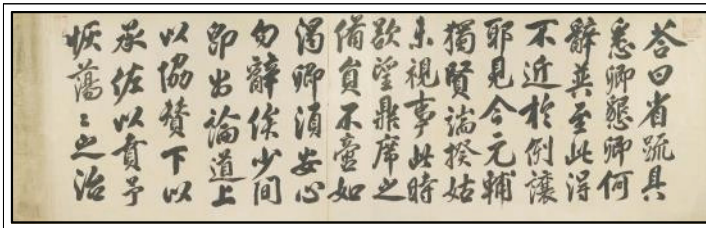 荅曰省疏具
悉卿懇卿何
辭至此得
不近於例讓
耶見今元輔
獨賢端揆姑
未視事此時
欲望鼎席之
備員不啻如
渴卿須安心
勿辭俟少間
卽出論道上
以協贊下以
承佐以賁予
恢蕩〻之治